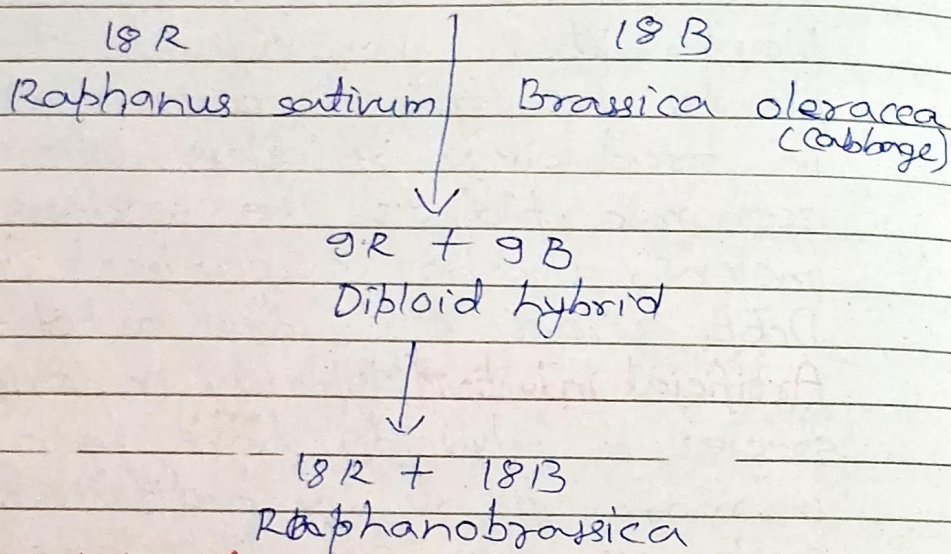 18 R 18 B
Raphanus sativum Brassica oleracea
(Cabbage)
9R + 9B
Diploid hybrid
18R + 18B
Raphanobrassica